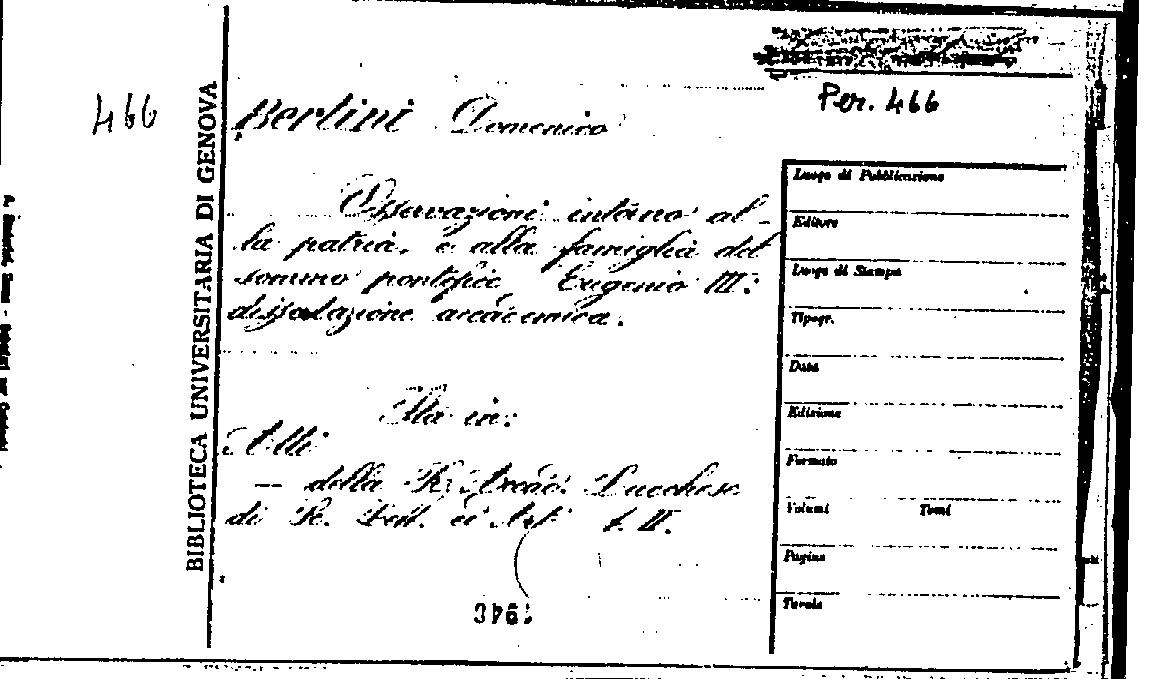 466
BIBLIOTECA UNIVERSITARIA DI GENOVA
Per. 466
Bertini Domenico
Osservazioni intorno al-
la patria, e alla famiglia del
sommo pontefice Eugenio III:
dissertazione accademica.
Sta in:
Atti
— della R. Accad. Lucchese
di Sc. Lett. ed Arti t. II.
1946
Luogo di Pubblicazione
Editore
Luogo di Stampa
Tipogr.
Data
Edizione
Formato
Volumi Tomi
Pagine
Tavole